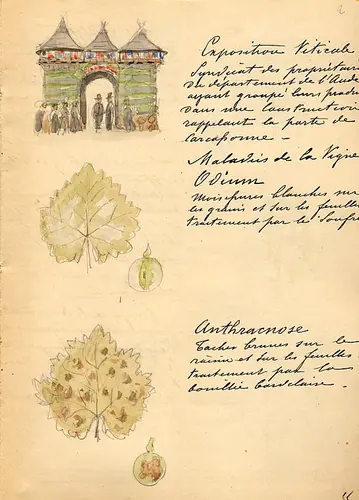 2
Exposition Viticole
Syndicat des propriétaires
du département de l'Aude
ayant groupé leurs produ
dans une construction
rappelant la porte de
Carcassonne –
Maladies de la Vigne
Odium
Moisissures blanches sur
les grains et sur les feuilles
traitement par le Soufre
1
Anthracnose
Taches brunes sur le
raisin et sur les feuilles
traitement par la
bouillie bordelaise –